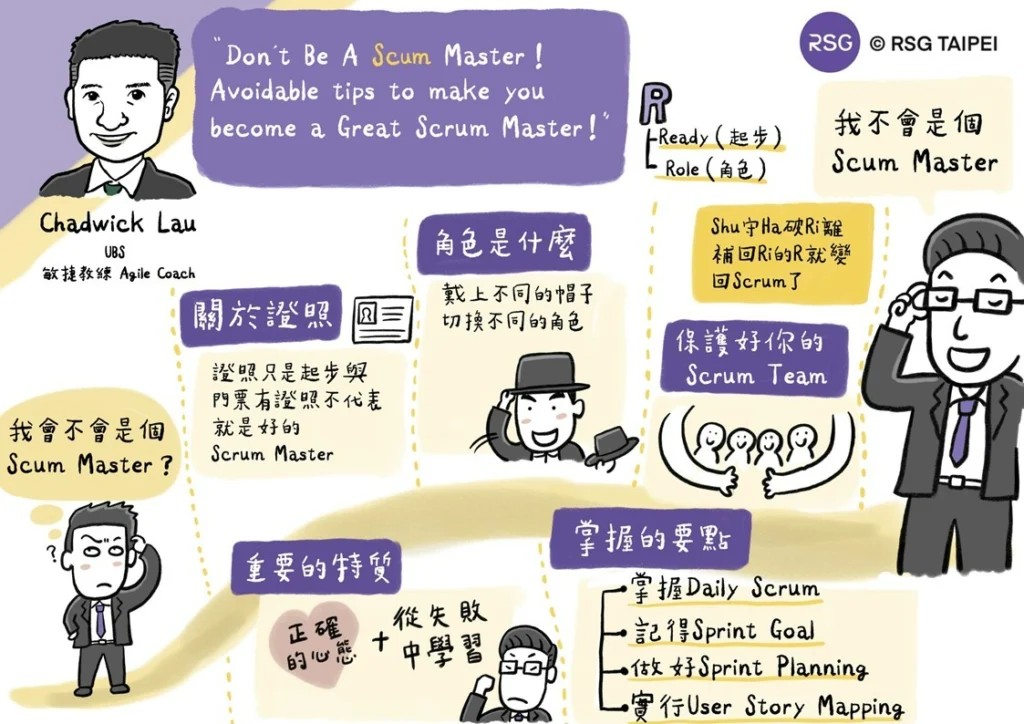 "Don't Be A Scum Master!
Avoidable tips to make you
become a Great Scrum Master!"
RSG © RSG TAIPEI
Chadwick Lau
UBS
敏捷教練 Agile Coach
R
Ready(起步)
Role(角色)
我不會是個
Scum Master
Shu守Ha破Ri離
補回Ri的R就變
回Scrum了
角色是什麼
戴上不同的帽子
切換不同的角色
關於證照
證照只是起步與
門票有證照不代表
就是好的
Scrum Master
保護好你的
Scrum Team
我會不會是個
Scum Master?
?
重要的特質
正確
的心態
+
從失敗
中學習
掌握的要點
掌握Daily Scrum
記得Sprint Goal
做好Sprint Planning
實行User Story Mapping